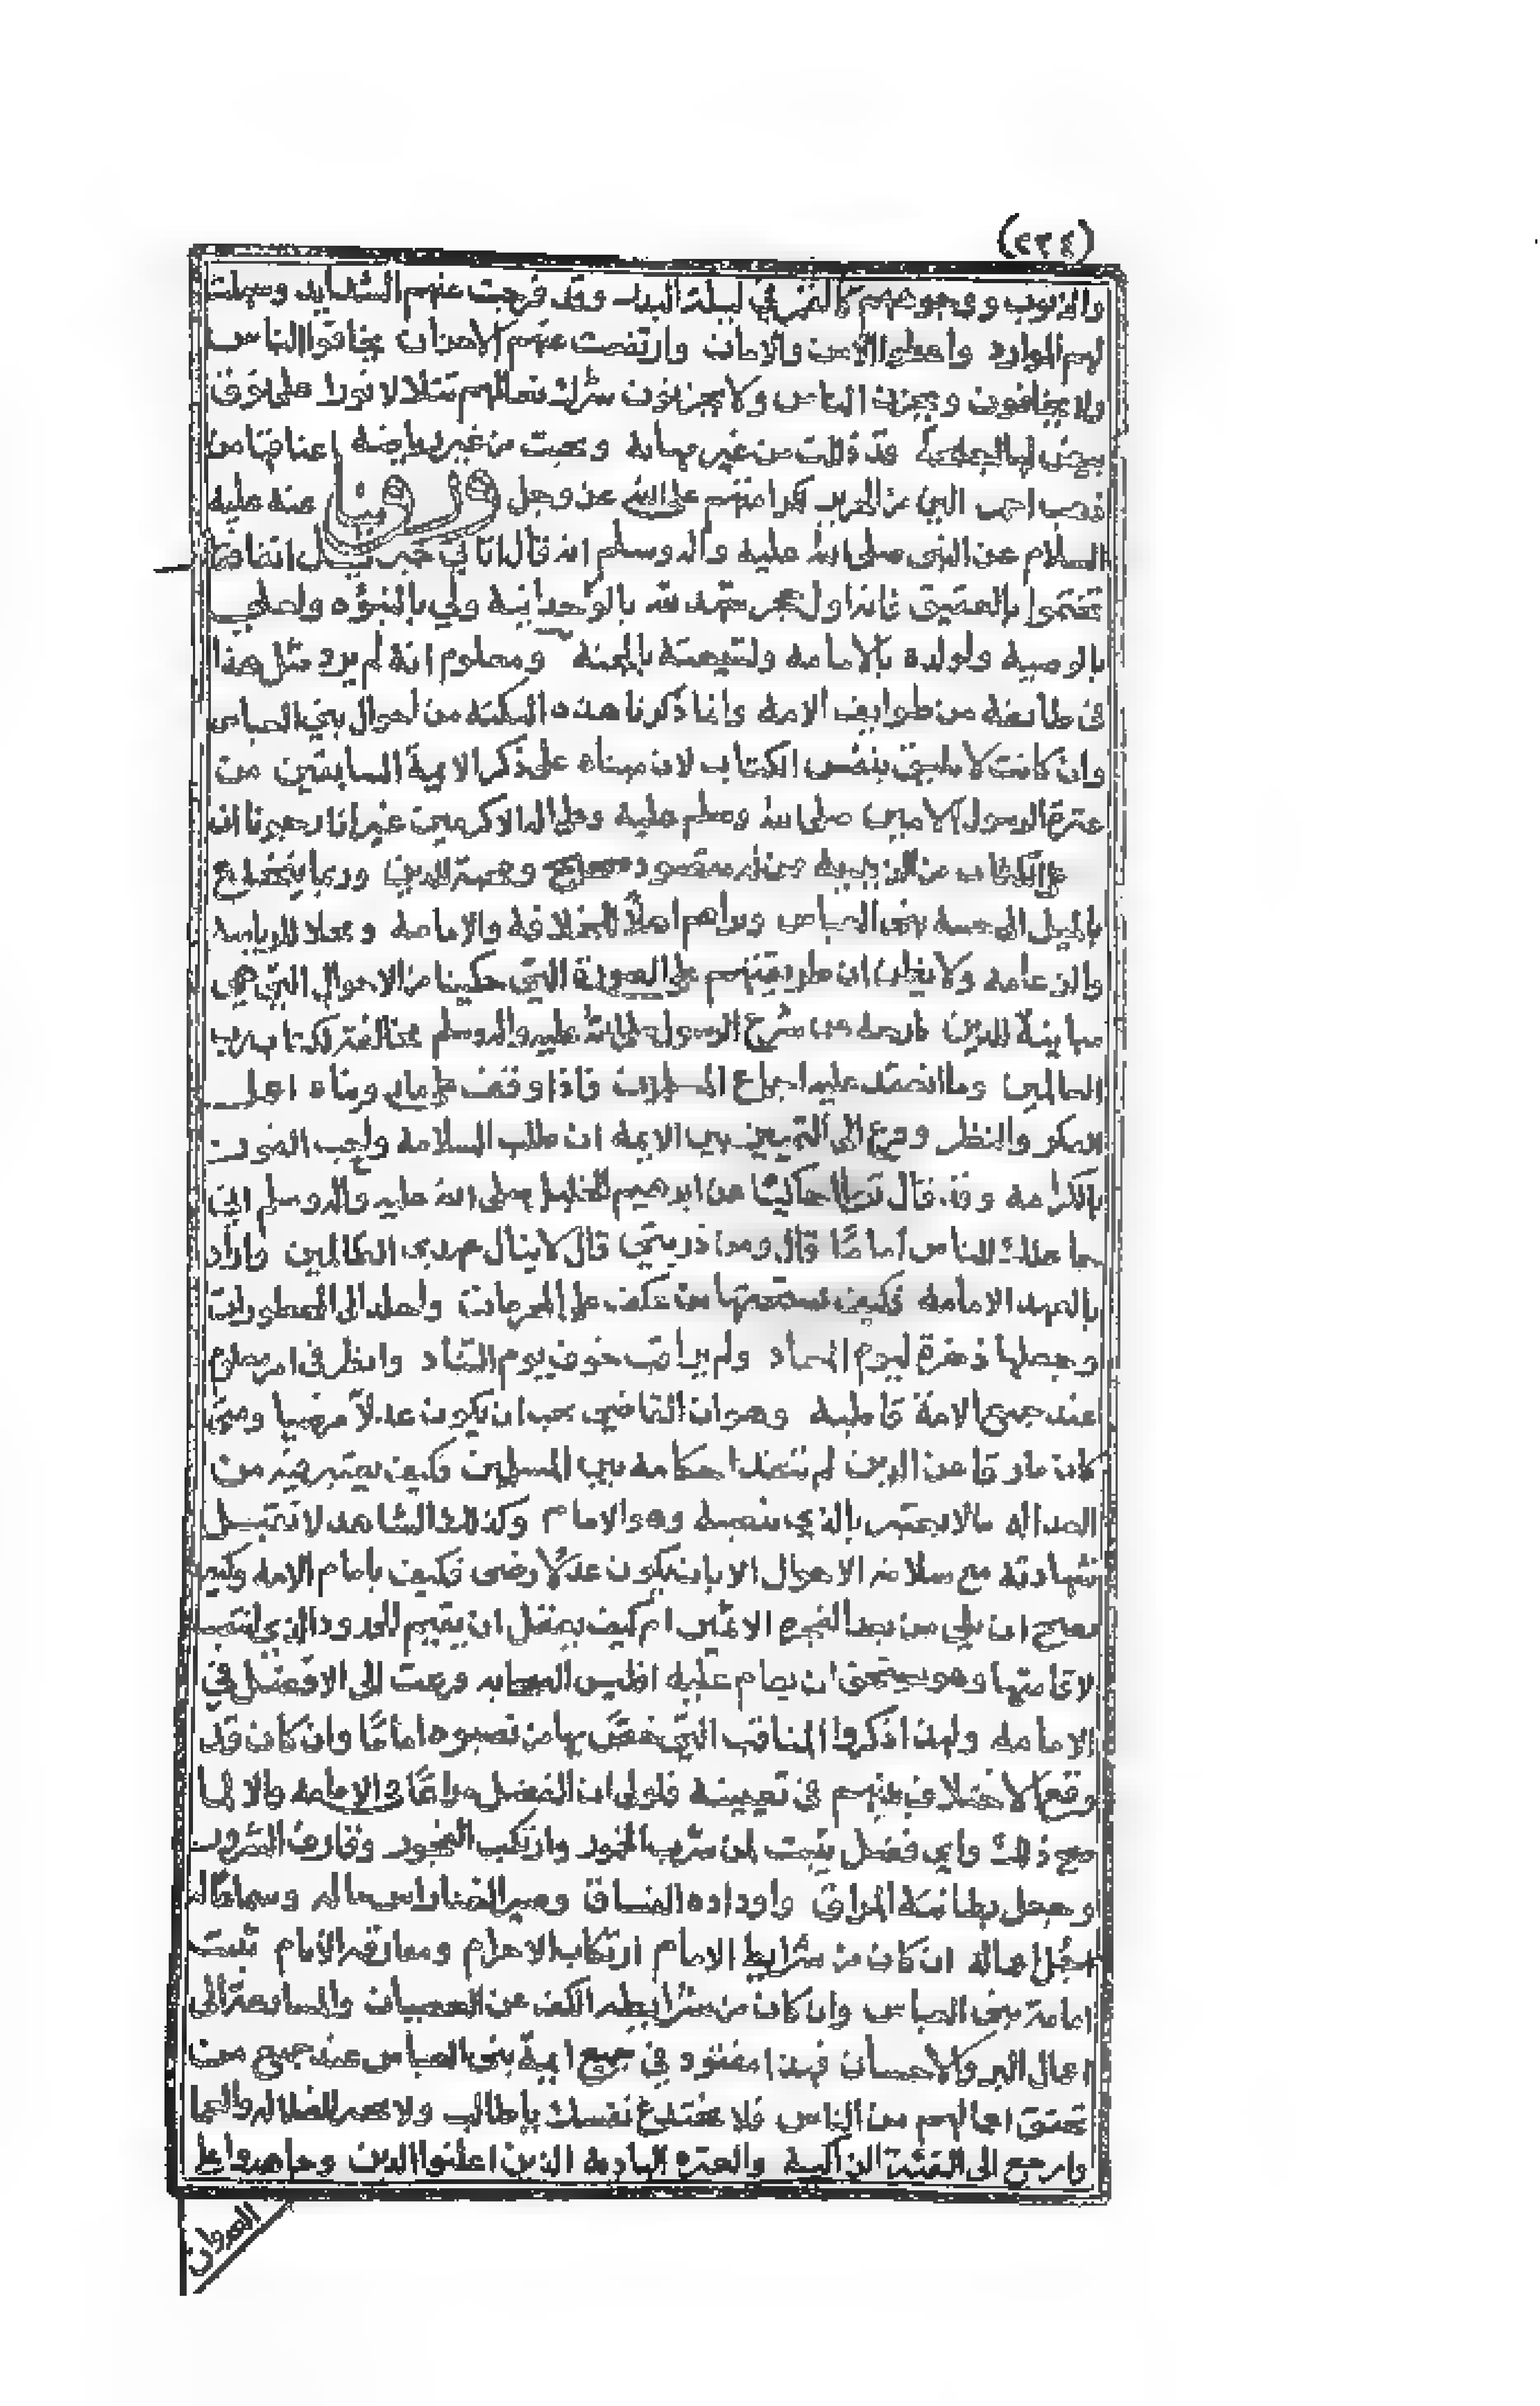 (٢٣٤)
والذنوب ووجوههم كالقمر في ليلة البدر وقد فرجت عنهم الشدايد وسهلت
لهم الموارد واعطوا الامن والامان وارتفعت عنهم الاحزان يخاف الناس
ولا يخافون ويحزن الناس ولا يحزنون شرك نعالهم تتلألأ نورا على نوق
بيض لها اجنحة قد ذللت من غير مهانة ونجبت من غير رياضة اعناقها من
ذهب احمر الين من الحرير لكرامتهم على الله عز وجل وروينا عنه عليه
السلام عن النبي صلى الله عليه واله وسلم انه قال اتاني جبريل انفا فقال
تختموا بالعقيق فانه اول حجر شهد لله بالوحدانية ولي بالنبوة ولعلي
بالوصية ولولده بالامامة ولشيعته بالجنة ومعلوم انه لم يرد مثل هذا
في طائفة من طوايف الامة وانما ذكرنا هذه النكتة من احوال بني العباس
وان كانت لا تليق بنفس الكتاب لان مبناه على ذكر الايمة السابقين من
عترة الرسول الامين صلى الله وسلم عليه وعلى اله الاكرمين غير انا رجونا ان
بالميل الى محبة بني العباس ويراهم اهلا للخلافة والامامة ومحلا للرياسة
والزعامة ولا يظن ان طريقتهم على الصورة التي حكينا من الاحوال التي هي
مباينة للدين خارجة من شرع الرسول صلى الله عليه واله وسلم مخالفة لكتاب رب
العالمين وما انعقد عليه اجماع المسلمين فاذا وقف على ما رويناه اعمل
الفكر والنظر وفزع الى التمييز بين الايمة ان طلب السلامة واحب الفوز
بالكرامة وقد قال تعالى حاكيا عن ابرهيم الخليل صلى الله عليه واله وسلم اني
جاعلك للناس اماما قال ومن ذريتي قال لا ينال عهدي الظالمين فاراد
بالعهد الامامة فكيف يستحقها من عكف على المحرمات واخلد الى المحظورات
وجعلها ذخرة ليوم المعاد ولم يراقب خوف يوم التناد وانظر في امر معلوم
عند جميع الامة قاطبة وهو ان القاضي يجب ان يكون عدلا مرضيا ومتى
كان مارقا عن الدين لم تنفذ احكامه بين المسلمين وكيف يعتبر فيه من
العدالة ما لا يعتبر بالذي ينصبه وهو الامام وكذلك الشاهد لا تقبل
شهادته مع سلامة الاحوال الا بان يكون عدلا رضى فكيف بامام الامة وكيف
يصح ان يلي من يعد الفجع الامين ام كيف يعقل ان يقيم الحدود الذي انتصب
لاقامتها وهو يستحق ان يقام عليه
الامامة ولهذا ذكروا المناقب التي خص بها من نصبوه اماما وان كان قد
وقع الاختلاف بينهم في تعيينه فلولا ان الفضل مراعا في الامامة والا لما
صح ذلك واي فضل يثبت لمن شرب الخمور وارتكب الفجور وقارف الشرور
وجعل بطانته المراق واوداده الفساق وصير القمار راس ماله
اجل اعماله ان كان من شرايط الامام ارتكاب الاجرام ومفارقة الاثام ثبتت
امامة بني العباس وان كان من شرايطه الكف عن العصيان والمسارعة الى
اعمال البر والاحسان فهذا مفقود في جميع ايمة بني العباس عند جميع من
تحقق احوالهم من الناس فلا تخدع نفسك يا طالب
فارجع الى الفئة الزاكية والعترة الهادية الذين اعلنوا الدين وجاهدوا اهل
العدوان